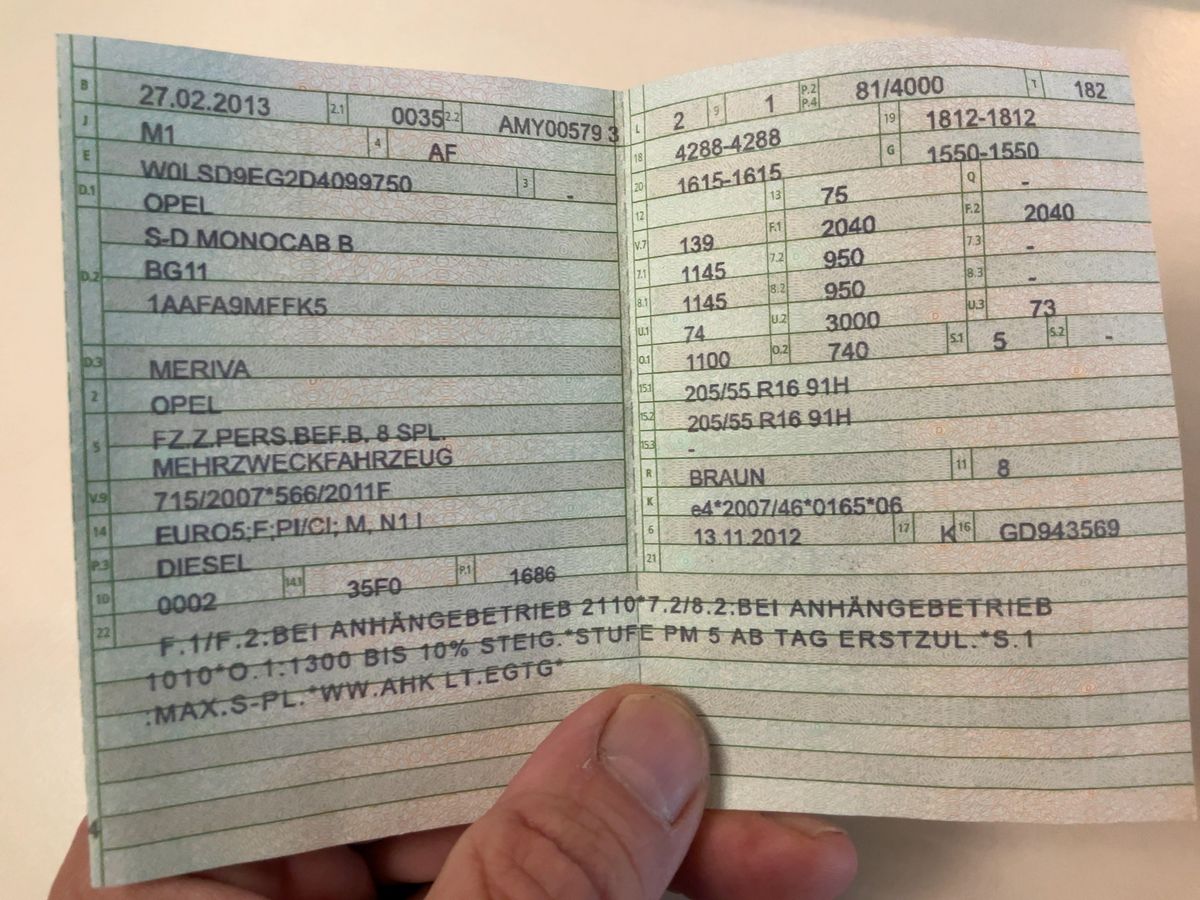 B 27.02.2013 2.1 0035 2.2 AMY00579 3
J M1 4 AF
E W0LSD9EG2D4099750 3 -
D.1 OPEL
D.2 S-D MONOCAB B
BG11
1AAFA9MFFK5
D.3 MERIVA
2 OPEL
5 FZ.Z.PERS.BEF.B. 8 SPL.
MEHRZWECKFAHRZEUG
V.9 715/2007*566/2011F
14 EURO5;F;PI/CI; M, N1 I
P.3 DIESEL
10 0002 14.1 35F0 P.1 1686
L 2 9 1 P.2 P.4 81/4000 T 182
18 4288-4288 19 1812-1812
20 1615-1615 G 1550-1550
12 13 75 Q -
V.7 139 F.1 2040 F.2 2040
7.1 1145 7.2 950 7.3 -
8.1 1145 8.2 950 8.3 -
U.1 74 U.2 3000 U.3 73
O.1 1100 O.2 740 S.1 5 S.2 -
15.1 205/55 R16 91H
15.2 205/55 R16 91H
15.3 -
R BRAUN 11 8
K e4*2007/46*0165*06
6 13.11.2012 17 K 16 GD943569
21
22 F.1/F.2:BEI ANHÄNGEBETRIEB 2110*7.2/8.2:BEI ANHÄNGEBETRIEB
1010*O.1:1300 BIS 10% STEIG.*STUFE PM 5 AB TAG ERSTZUL.*S.1
:MAX.S-PL.*WW.AHK LT.EGTG*